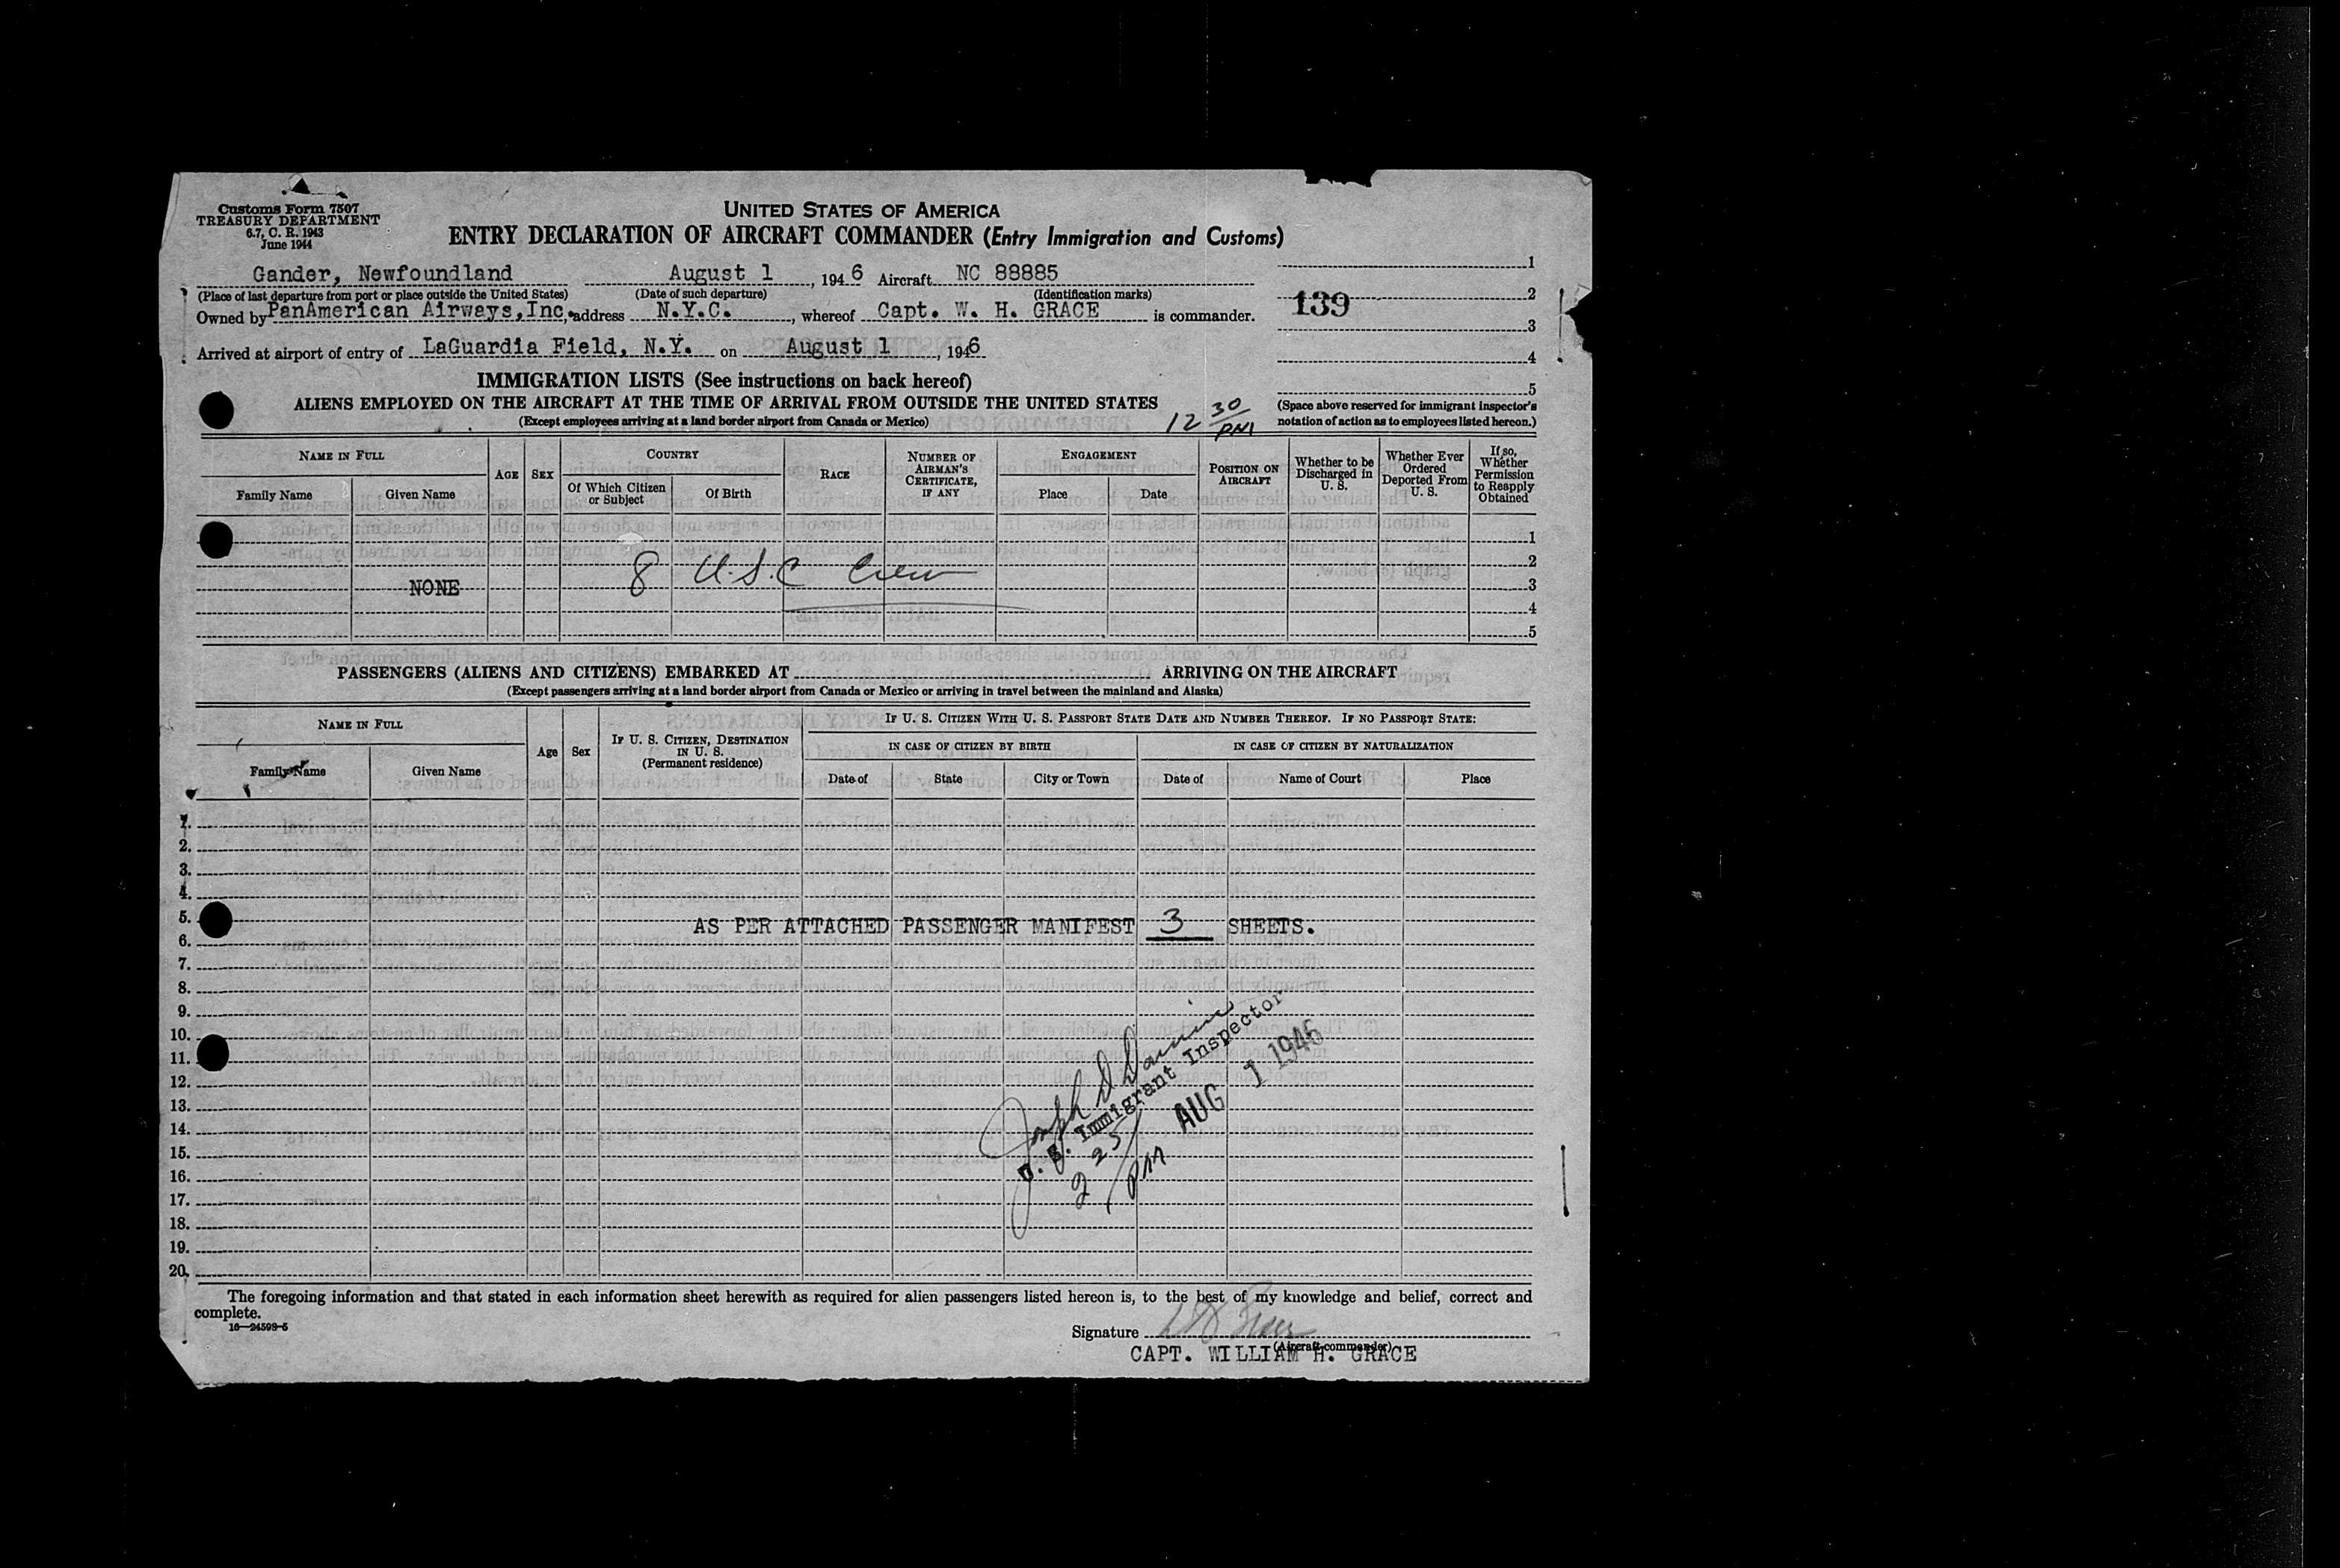 Customs Form 7507
TREASURY DEPARTMENT
6.7, C. R. 1943
June 1944
UNITED STATES OF AMERICA
ENTRY DECLARATION OF AIRCRAFT COMMANDER (Entry Immigration and Customs)
Gander, Newfoundland August 1, 1946 Aircraft NC 88885
(Place of last departure from port or place outside the United States) (Date of such departure) (Identification marks)
Owned by PanAmerican Airways, Inc. address N.Y.C., whereof Capt. W. H. GRACE is commander.
Arrived at airport of entry of LaGuardia Field, N.Y. on August 1, 1946
1
2
139
3
4
5
(Space above reserved for immigrant inspector's
notation of action as to employees listed hereon.)
IMMIGRATION LISTS (See instructions on back hereof)
ALIENS EMPLOYED ON THE AIRCRAFT AT THE TIME OF ARRIVAL FROM OUTSIDE THE UNITED STATES
(Except employees arriving at a land border airport from Canada or Mexico)
12 30 PM
NAME IN FULL
Family Name
Given Name
AGE
SEX
COUNTRY
Of Which Citizen
or Subject
Of Birth
RACE
NUMBER OF
AIRMAN'S
CERTIFICATE,
IF ANY
ENGAGEMENT
Place
Date
POSITION ON
AIRCRAFT
Whether to be
Discharged in
U. S.
Whether Ever
Ordered
Deported From
U. S.
If so,
Whether
Permission
to Reapply
Obtained
1
2
8 U.S.C Crew
NONE
3
4
5
PASSENGERS (ALIENS AND CITIZENS) EMBARKED AT ARRIVING ON THE AIRCRAFT
(Except passengers arriving at a land border airport from Canada or Mexico or arriving in travel between the mainland and Alaska)
NAME IN FULL
Family Name
Given Name
Age
Sex
IF U. S. CITIZEN, DESTINATION
IN U. S.
(Permanent residence)
IF U. S. CITIZEN WITH U. S. PASSPORT STATE DATE AND NUMBER THEREOF. IF NO PASSPORT STATE:
IN CASE OF CITIZEN BY BIRTH
IN CASE OF CITIZEN BY NATURALIZATION
Date of
State
City or Town
Date of
Name of Court
Place
1.
2.
3.
4.
5.
AS PER ATTACHED PASSENGER MANIFEST 3 SHEETS.
6.
7.
8.
9.
10.
11.
12.
13.
14.
15.
16.
17.
18.
19.
20.
Joseph D
U. S. Immigrant Inspector
2 25 PM AUG 1 1946
The foregoing information and that stated in each information sheet herewith as required for alien passengers listed hereon is, to the best of my knowledge and belief, correct and
complete.
16—24598-5
Signature W H Grace
(Aircraft commander)
CAPT. WILLIAM H. GRACE